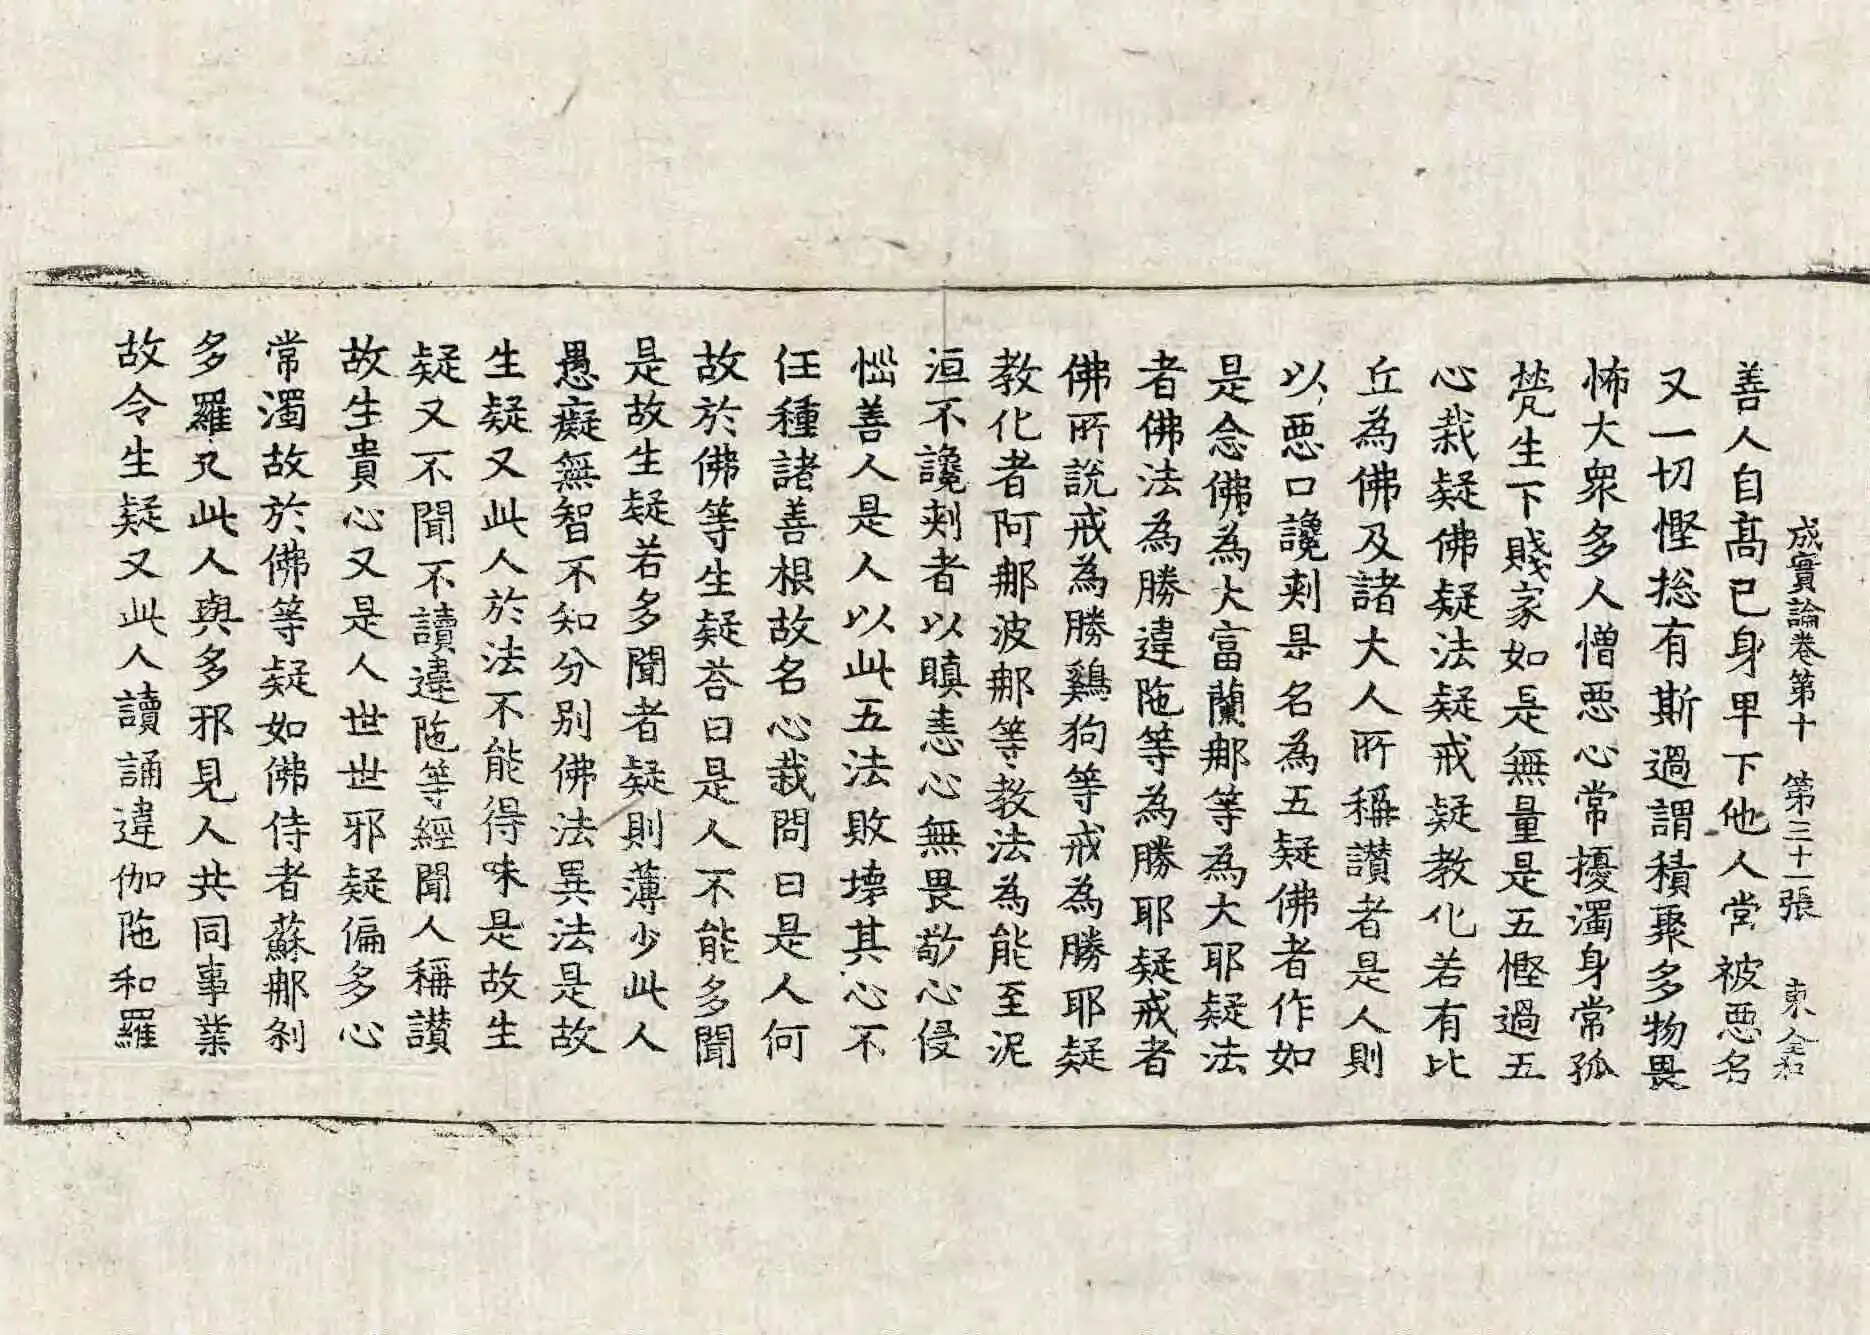 成實論卷第十　第三十一張　東　全和
善人自髙已身卑下他人常被惡名
又一切慳惣有斯過謂積聚多物畏
怖大衆多人憎惡心常擾濁身常孤
㷀生下賤家如是無量是五慳過五
心栽疑佛疑法疑戒疑教化若有比
丘為佛及諸大人所稱讃者是人則
以惡口讒刾是名為五疑佛者作如
是念佛為大富蘭那等為大耶疑法
者佛法為勝違陁等為勝耶疑戒者
佛所說戒為勝鷄狗等戒為勝耶疑
教化者阿那波那等教法為能至泥
洹不讒刾者以瞋恚心無畏敬心侵
惱善人是人以此五法敗壊其心不
任種諸善根故名心栽問曰是人何
故於佛等生疑荅曰是人不能多聞
是故生疑若多聞者疑則薄少此人
愚癡無智不知分别佛法異法是故
生疑又此人於法不能得味是故生
疑又不聞不讀違陁等經聞人稱讃
故生貴心又是人世世邪疑偏多心
常濁故於佛等疑如佛侍者蘇那刹
多羅又此人與多邪見人共同事業
故令生疑又此人讀誦違伽陁和羅